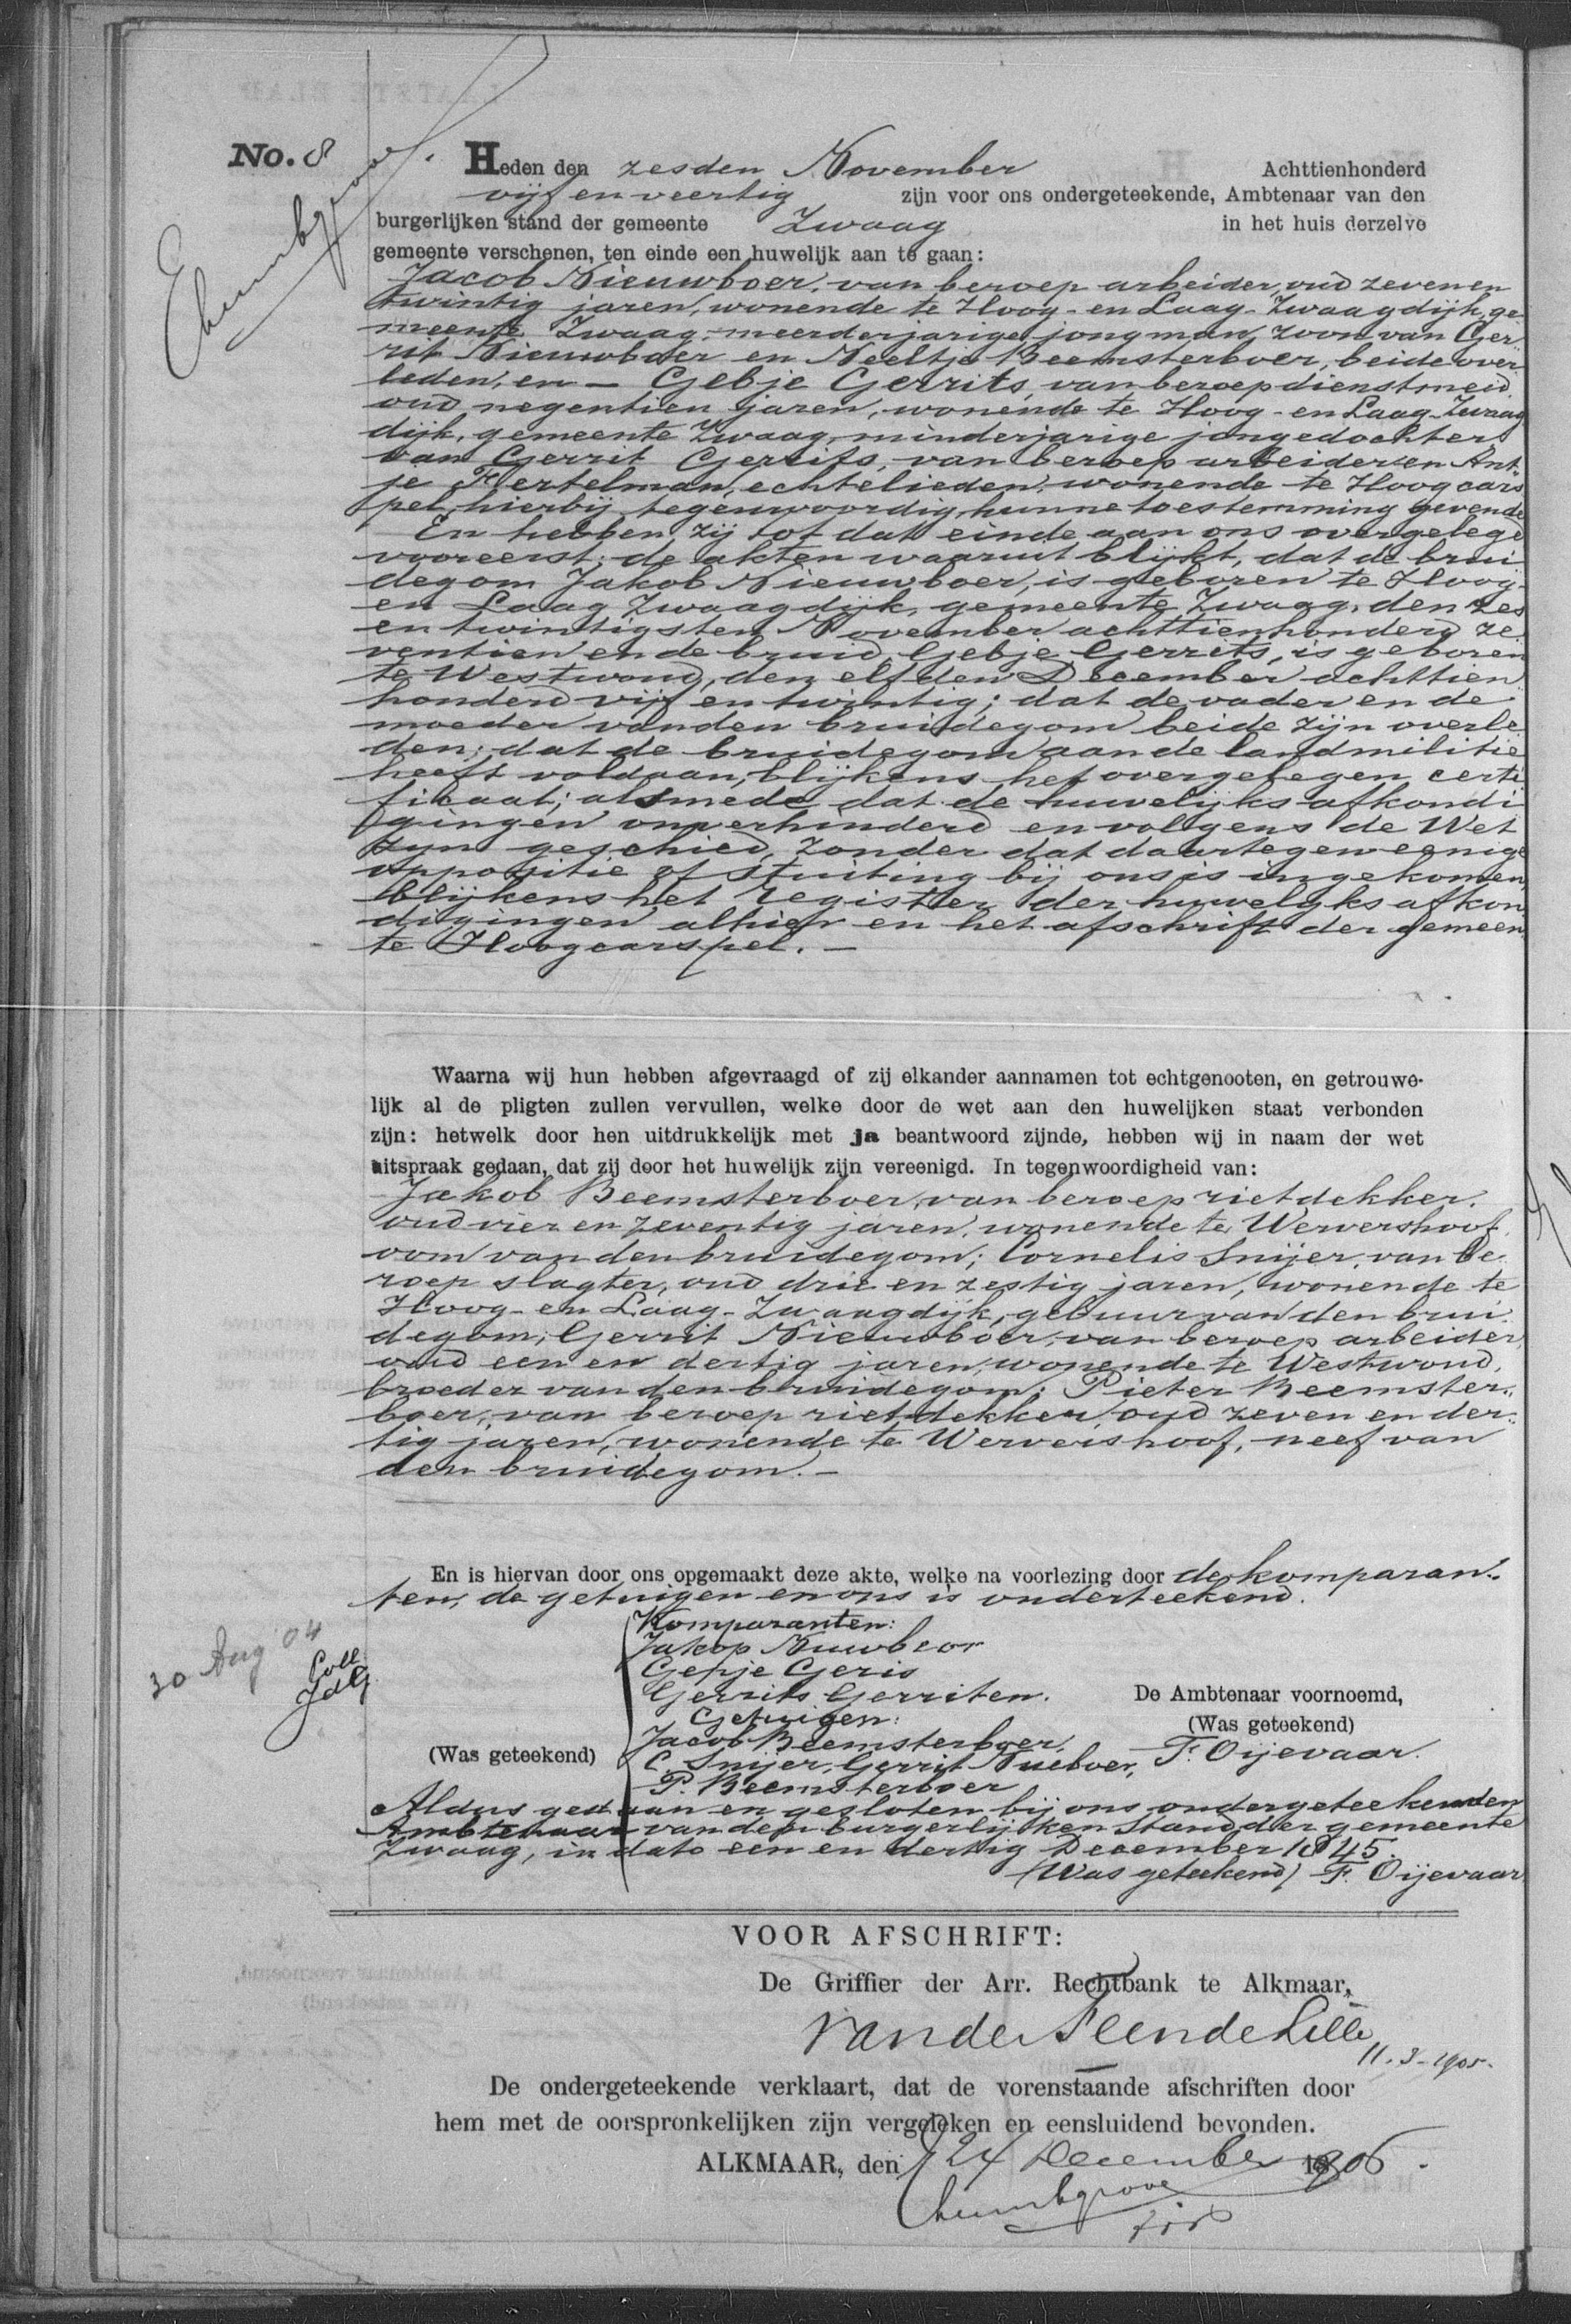 No. 8
Heden den zesden November Achttienhonderd
vijf en veertig zijn voor ons ondergeteekende, Ambtenaar van den
burgerlijken stand der gemeente Zwaag in het huis derzelve
gemeente verschenen, ten einde een huwelijk aan te gaan:
Jacob Nieuwboer, van beroep arbeider, oud zeven en
twintig jaren, wonende te Hoog- en Laag-Zwaagdijk, ge-
meente Zwaag, meerderjarige jongman, zoon van Ger-
rit Nieuwboer en Neeltje Beemsterboer, beide over-
leden, en — Gebje Gerrits, van beroep dienstmeid
oud negentien jaren, wonende te Hoog- en Laag-Zwaag
dijk, gemeente Zwaag, minderjarige jongedochter
van Gerrit Gerrits, van beroep arbeider en Ant-
je Kertelman, echtelieden, wonende te Hoogcars
pel, hierbij tegenwoordig, hunne toestemming gevende
En hebben zij tot dat einde aan ons overgelegd
vooreerst; de akten waaruit blijkt, dat de brui
degom Jakob Nieuwboer, is geboren te Hoog-
en Laag Zwaagdijk, gemeente Zwaag, den zes
en twintigsten November achttienhonderd ze-
ventien en de bruid Gebje Gerrits, is geboren
te Westwoud, den elfden December achttien
honderd vijf en twintig; dat de vader en de
moeder van den bruidegom beide zijn overle
den; dat de bruidegom aan de landmilitie
heeft voldaan, blijkens het overgelegen certi
ficaat; alsmede dat de huwelijks afkondi
gingen onverhinderd en volgens de Wet
zijn geschied, zonder dat daartegen eenige
oppositie of stuiting bij ons is ingekomen,
blijkens het register der huwelijks afkon
digingen alhier en het afschrift der gemeen
te Hoogcarspel. —
Waarna wij hun hebben afgevraagd of zij elkander aannamen tot echtgenooten, en getrouwe-
lijk al de pligten zullen vervullen, welke door de wet aan den huwelijken staat verbonden
zijn: hetwelk door hen uitdrukkelijk met ja beantwoord zijnde, hebben wij in naam der wet
uitspraak gedaan, dat zij door het huwelijk zijn vereenigd. In tegenwoordigheid van:
Jakob Beemsterboer, van beroep rietdekker,
oud vier en zeventig jaren, wonende te Wervershoof,
oom van den bruidegom; Cornelis Snijer, van be
roep slagter, oud drie en zestig jaren, wonende te
Hoog- en Laag-Zwaagdijk, gebuur van den brui-
degom; Gerrit Nieuwboer, van beroep arbeider,
oud een en dertig jaren, wonende te Westwoud,
broeder van den bruidegom; Pieter Beemster-
boer, van beroep rietdekker, oud zeven en der-
tig jaren, wonende te Wervershoof, neef van
den bruidegom. —
En is hiervan door ons opgemaakt deze akte, welke na voorlezing door de komparan-
ten, de getuigen en ons is onderteekend.
30 Aug '04
Coll
JdG
Komparanten:
Jakop Nuwboor
Gepje Geris
Gerrits Gerriten.
De Ambtenaar voornoemd,
Getuigen:
(Was geteekend)
Jacob Beemsterboer,
(Was geteekend)
C. Snijer, Gerrit Nueboer,
F. Oijevaar.
P. Beemsterboer
Aldus gedaan en gesloten bij ons ondergeteekenden
Ambtenaar van den burgerlijken Stand der gemeente
Zwaag, in dato een en dertig December 1845.
(Was geteekend) F. Oijevaar
VOOR AFSCHRIFT:
De Griffier der Arr. Rechtbank te Alkmaar,
11.3-1905.
De ondergeteekende verklaart, dat de vorenstaande afschriften door
hem met de oorspronkelijken zijn vergeleken en eensluidend bevonden.
ALKMAAR, den 24 December 1906.